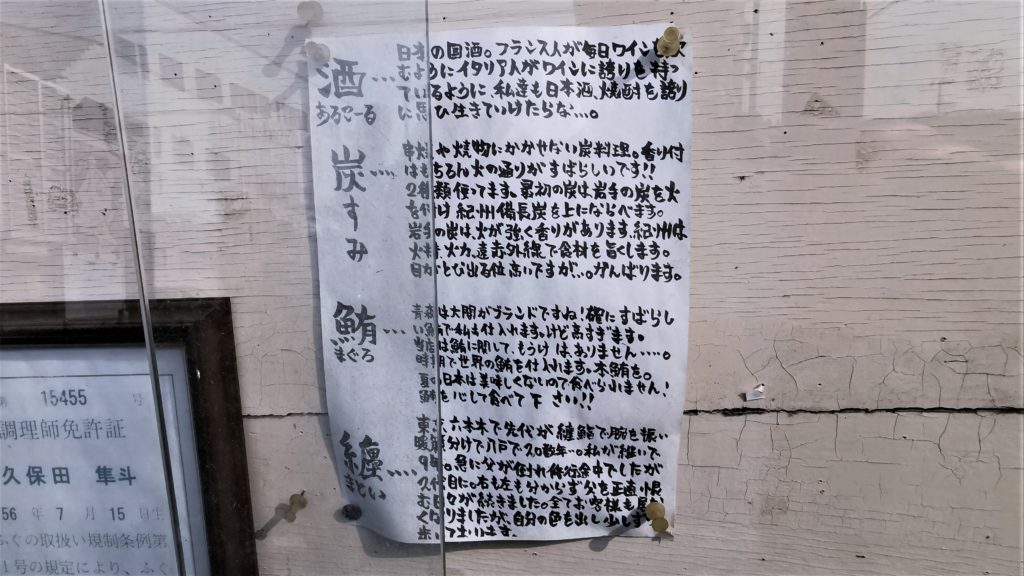 酒
あるこーる
日本の国酒。フランス人が毎日ワインを
むようにイタリア人がワインに誇りを持っ
ているように 私達も日本酒、焼酎を誇り
生きていけたらな…。
炭
すみ
や焼物にかかせない炭料理。香り付
はもちろん火の通りがすばらしいです!!
使ってます。最初の炭は岩手の炭を火
紀州備長炭を上にならべます。
岩手の炭は、火が強く香りがあります。紀州は
火力、遠赤外線で食材を旨くします。
目がとび出る位高いですが…。がんばります。
鮪
まぐろ
青森は大間がブランドですね!確にすばらし
い で私も仕入れます。けど高すぎます。
当店は鮪に関して、もうけはありません…。
時 で世界の鮪を仕入れます。本鮪を。
夏の日本は美味しくないので食べられません!
にして食べて下さい!!
纏
まとい
東 、六本木で先代が纏鮨で腕を振い
分けで八戸で20数年〜。私が継いで
9年。急に父が 修行途中でしたが
2代目に。右も左も分からず父を正直 恨
む が続きました。全てお客様も
く なりましたが、自分の色を出し
参ります。
15455 号
調理師免許証
久保田 隼斗
56 年 7 月 15 日生
ふぐの取扱い規制条例第
1号の規定により、ふぐ